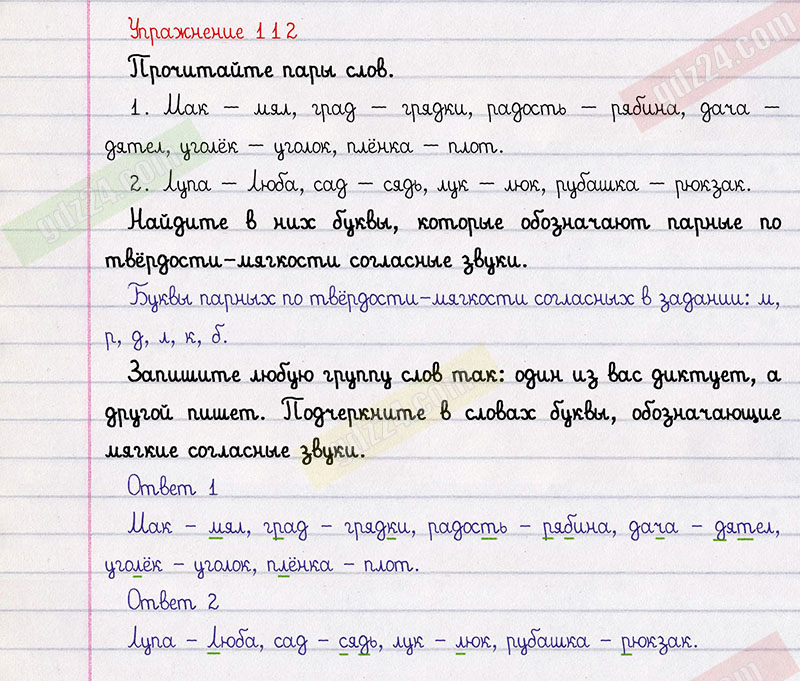 Упражнение 112
gdz24.com
Прочитайте пары слов.
1. Мак – мял, град – грядки, радость – рябина, дача –
дятел, уголёк – уголок, плёнка – плот.
gdz24.com
2. Лупа – Люба, сад – сядь, лук – люк, рубашка – рюкзак.
Найдите в них буквы, которые обозначают парные по
твёрдости-мягкости согласные звуки.
Буквы парных по твёрдости-мягкости согласных в задании: м,
р, д, л, к, б.
Запишите любую группу слов так: один из вас диктует, а
другой пишет. Подчеркните в словах буквы, обозначающие
gdz24.com
мягкие согласные звуки.
Ответ 1
Мак – мял, град – грядки, радость – рябина, дача – дятел,
уголёк – уголок, плёнка – плот.
Ответ 2
Лупа – Люба, сад – сядь, лук – люк, рубашка – рюкзак.